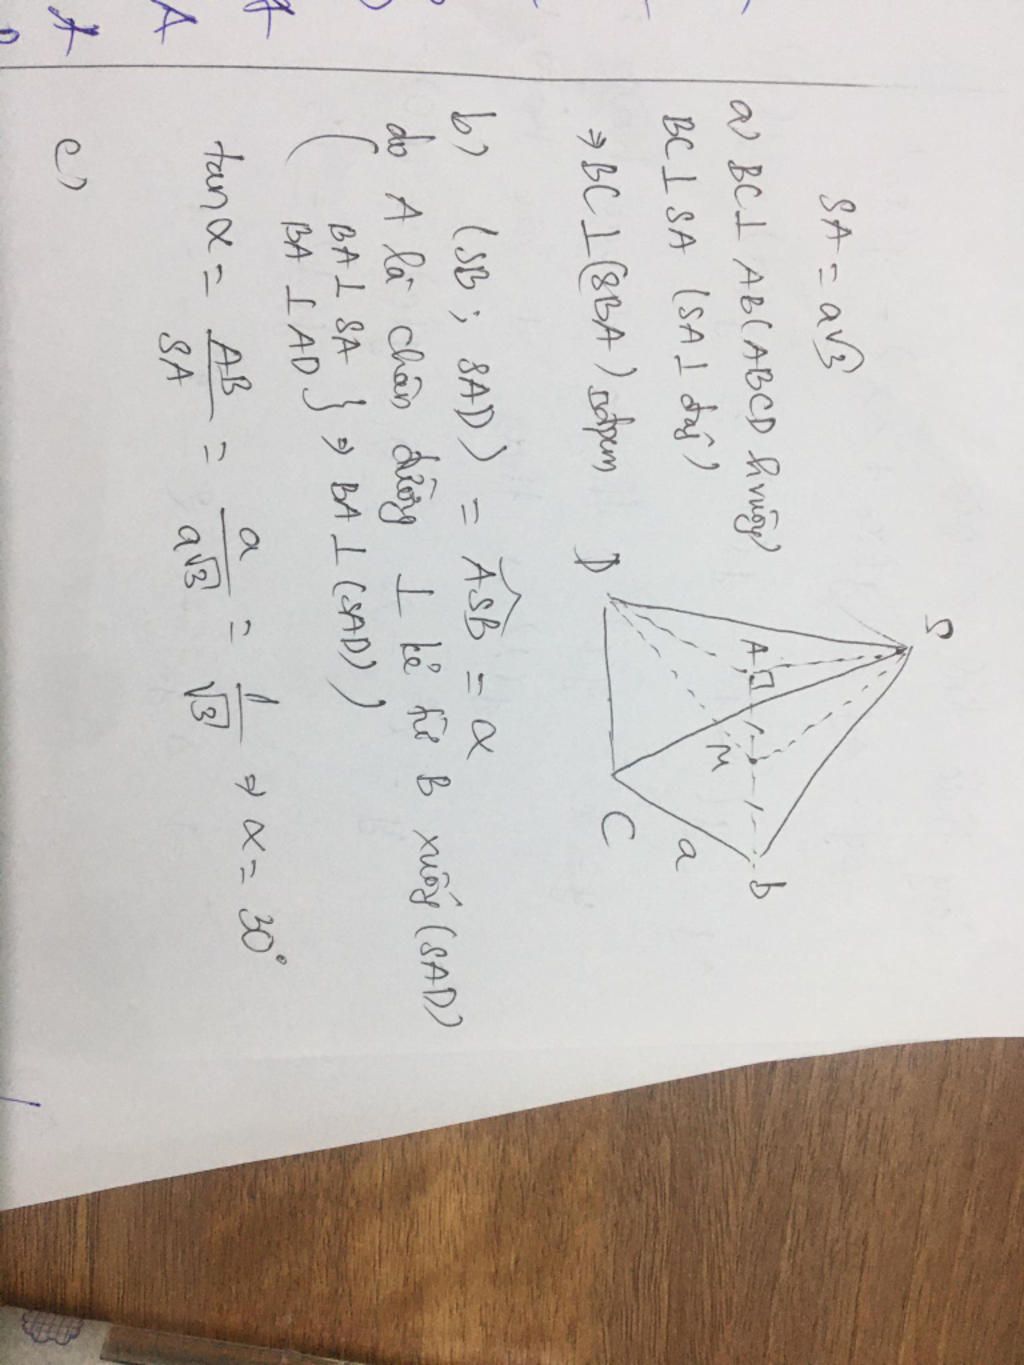 SA = a√3
a) BC ⊥ AB (ABCD hvuông)
BC ⊥ SA (SA ⊥ đáy)
⇒ BC ⊥ (SBA)
S
A
M
D
C
a
b
b) (SB; SAD) = ASB = α
do A là chân đường ⊥ kẻ từ B xuống (SAD)
( BA ⊥ SA
BA ⊥ AD } ⇒ BA ⊥ (SAD) )
tan α = AB/SA = a/a√3 = 1/√3 ⇒ α = 30°
c)